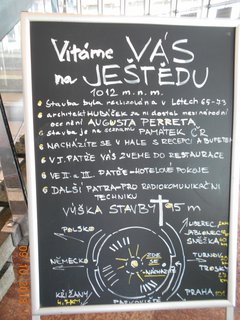 Vítáme VÁS
na JEŠTĚDU
1012 m.n.m.
Stavba byla realizována v létech 65-73
architekt HUBÁČEK za ni dostal mezinárodní
ocenění AUGUSTA PERRETA
Stavba je na seznamu PAMÁTEK ČR
NACHÁZÍTE SE V HALE S RECEPCÍ A BUFETEM
V I. PATŘE VÁS ZVEME DO RESTAURACE
VE II. A III. PATŘE-HOTELOVÉ POKOJE
DALŠÍ PATRA-PRO RADIOKOMUNIKAČNÍ
TECHNIKU
VÝŠKA STAVBY
POLSKO
NĚMECKO
KŘIŽANY
ZDE SE
NACHÁZÍTE
LIBEREC
JABLONEC
SNĚŽKA
TURNOV
TROSKY
PRAHA
PARKOVIŠTĚ